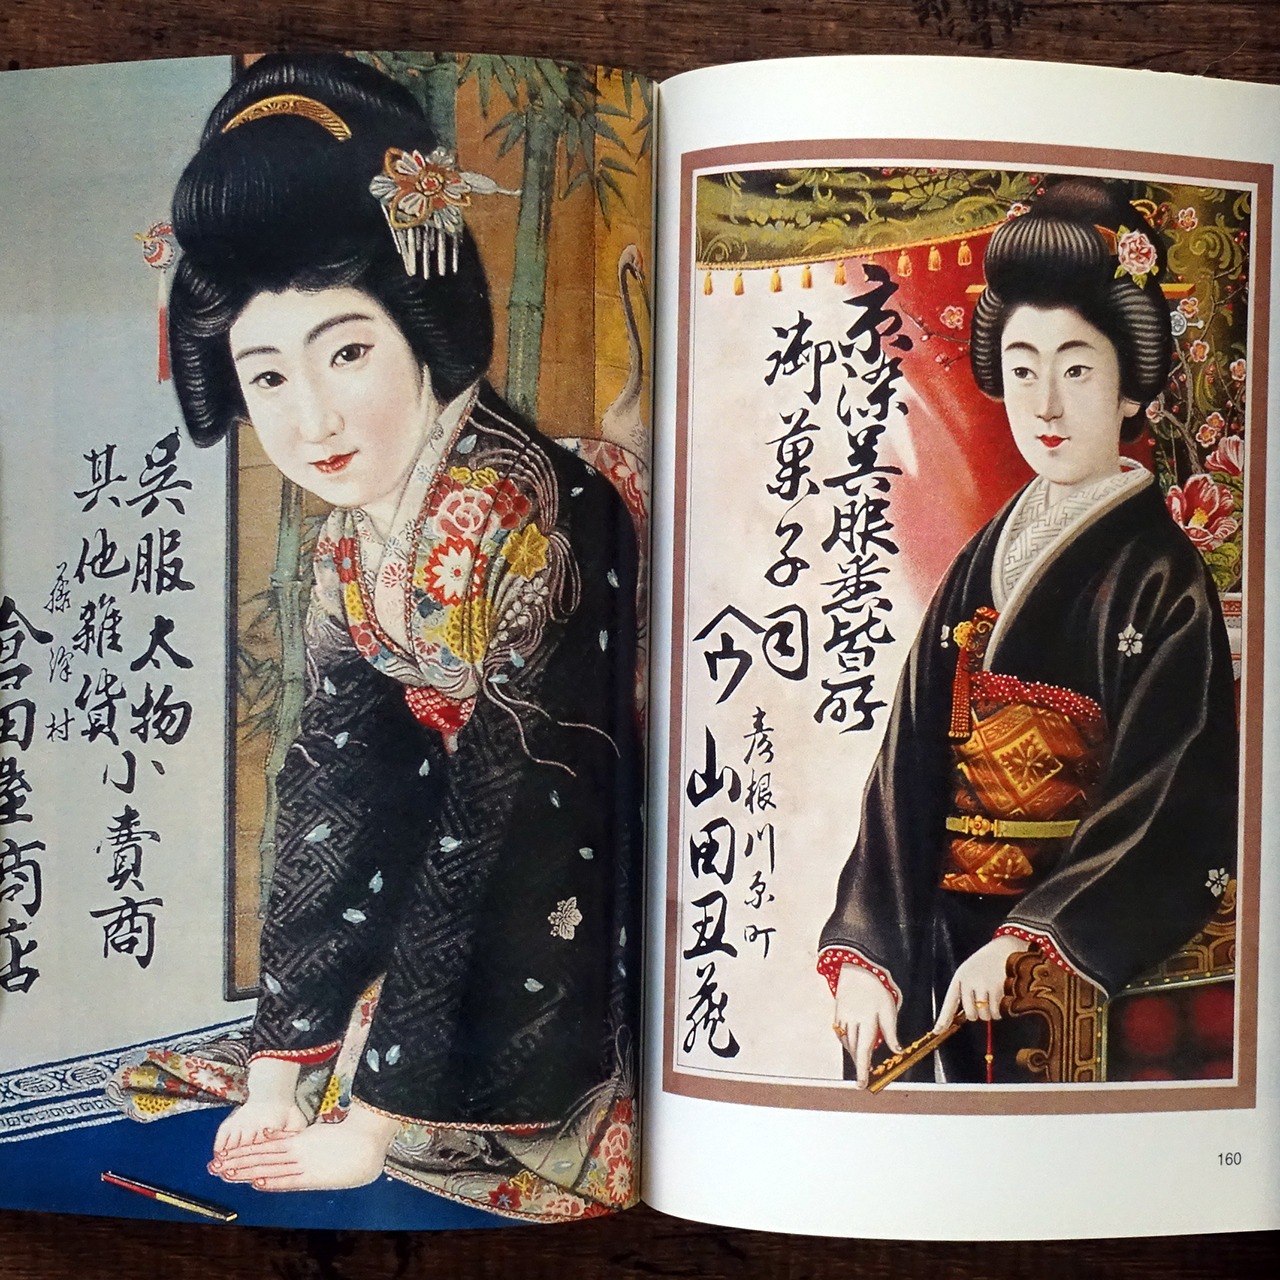 呉服太物
其他雜貨
小賣商
田屋商店
京染呉服悉皆所
御菓子司
彦根川原町
山田丑藏
160